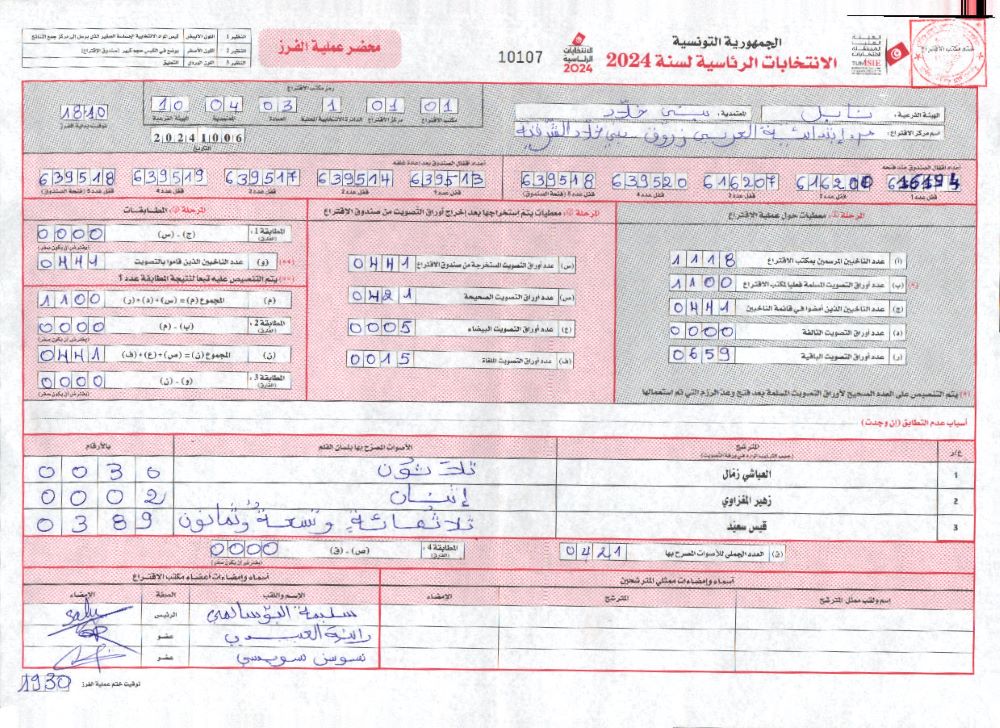 الجمهورية التونسية
الانتخابات الرئاسية لسنة 2024
10107
الانتخابات الرئاسية 2024
محضر عملية الفرز
النظير 1 اللون الأبيض
النظير 2 اللون الأصفر
النظير 3 اللون الوردي التعليق
ختم مكتب الاقتراع
الهيئة الفرعية: نابل المعتمدية: بني خلاد
اسم مركز الاقتراع:
رمز مكتب الاقتراع
01 01 1 03 04 10
مكتب الاقتراع مركز الاقتراع الدائرة الانتخابية المحلية العمادة المعتمدية الهيئة الفرعية
20241006
التاريخ
1810
توقيت بداية الفرز
أعداد أقفال الصندوق عند فتحه
616207 639520 639518
قفل عدد 1 قفل عدد 2 قفل عدد 3 قفل عدد 4 قفل عدد 5 (فتحة الصندوق)
أعداد أقفال الصندوق بعد إعادة غلقه
639513 639514 639517 639519 639518
قفل عدد 1 قفل عدد 2 قفل عدد 3 قفل عدد 4 قفل عدد 5 (فتحة الصندوق)
المرحلة ①: معطيات حول عملية الاقتراع
(أ) عدد الناخبين المرسمين بمكتب الاقتراع 1118
(ب) عدد أوراق التصويت المسلمة فعليا لمكتب الاقتراع 1100 (*)
(ج) عدد الناخبين الذين أمضوا في قائمة الناخبين 0441
(د) عدد أوراق التصويت التالفة 0000
(ر) عدد أوراق التصويت الباقية 0659
(*) يتم التنصيص على العدد الصحيح لأوراق التصويت المسلمة بعد فتح وعد الرزم التي تم استعمالها
المرحلة ②: معطيات يتم استخراجها بعد إخراج أوراق التصويت من صندوق الاقتراع
(س) عدد أوراق التصويت المستخرجة من صندوق الاقتراع 0441
(ص) عدد أوراق التصويت الصحيحة 0421
(ع) عدد أوراق التصويت البيضاء 0005
(ف) عدد أوراق التصويت الملغاة 0015
المرحلة ③: المطابقات
المطابقة 1: (الفارق) (ج) - (س) 0000
(يفترض أن يكون صفر)
(**) (و) عدد الناخبين الذين قاموا بالتصويت 0441
(**) يتم التنصيص عليه تبعا لنتيجة المطابقة عدد 1
(م) المجموع (م) = (س) + (د) + (ر) 1100
المطابقة 2: (الفارق) (ب) - (م) 0000
(ن) المجموع (ن) = (ص) + (ع) + (ف) 0441
المطابقة 3: (الفارق) (و) - (ن) 0000
(يفترض أن يكون صفر)
أسباب عدم التطابق (إن وجدت)
ع/ر المترشح الأصوات المصرح بها بلسان القلم بالأرقام
(حسب الترتيب الوارد في ورقة التصويت)
1 العياشي زمال ثلاثون 0030
2 زهير المغزاوي إثنان 0002
3 قيس سعيد ثلاثمائة وتسعة وثمانون 0389
(ق) العدد الجملي للأصوات المصرح بها 0421 المطابقة 4: (الفارق) (ص) - (ق) 0000
(يفترض أن يكون صفر)
أسماء وإمضاءات ممثلي المترشحين
اسم ولقب ممثل المترشح المترشح الإمضاء
أسماء وإمضاءات أعضاء مكتب الاقتراع
الإسم واللقب الصفة الإمضاء
الرئيس
عضو
سوسن سويسي عضو
توقيت ختم عملية الفرز 1930